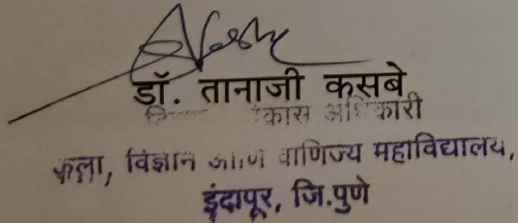 डॉ. तानाजी कसबे
विकास अधिकारी
कला, विज्ञान आणि वाणिज्य महाविद्यालय,
इंदापूर, जि.पुणे